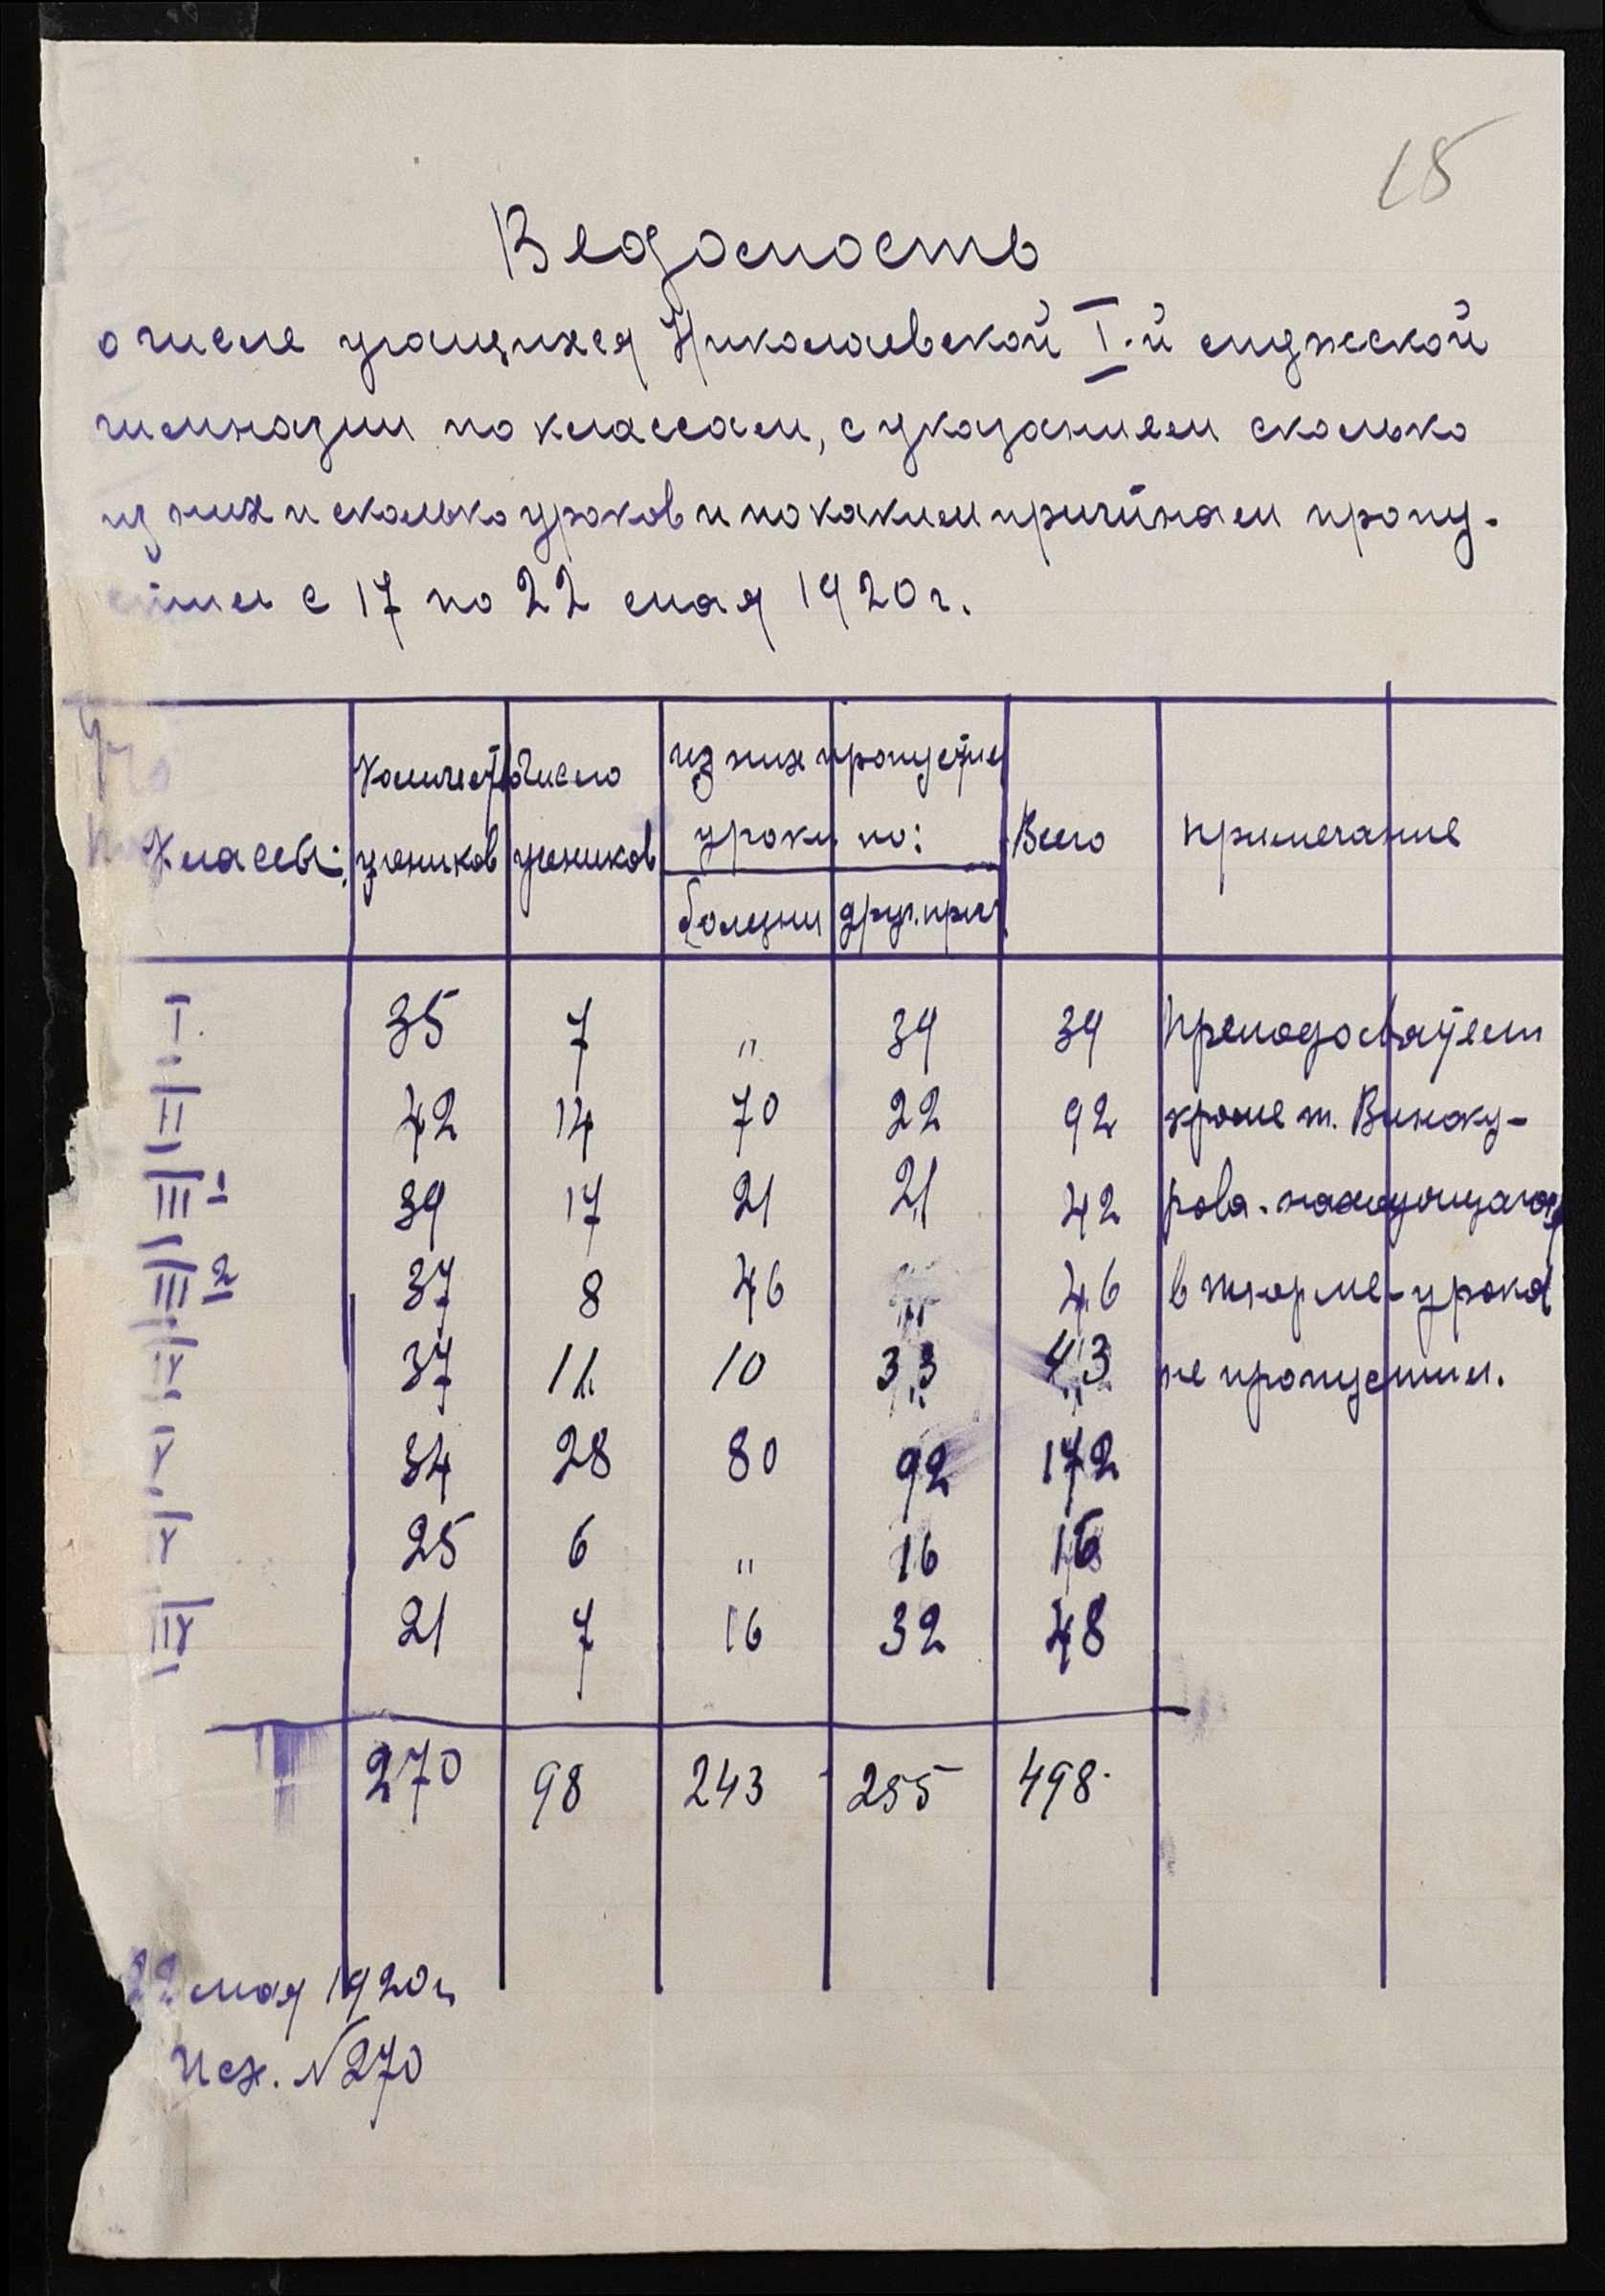 15
Ведомость
о числе учащихся Николаевской I-й мужской
гимназии по классам, с указанием сколько
из них и сколько уроков и по каким причинам пропу-
стили с 17 по 22 мая 1920 г.
Классы: Количество учеников Число учеников из них пропустили уроки по: Всего Примечание
болезни друг. прич.
I. 35 7 " 39 39 Преподаватели
II 42 14 70 22 92 кроме т. Виноку-
III 1 39 17 21 21 42 рова - находящагося
III 2 37 8 46 " 46 в тюрьме - уроков
IV 37 11 10 33 43 не пропустили.
V 34 28 80 92 172
25 6 " 16 16
21 7 16 32 48
270 98 243 255 498
22 мая 1920 г.
Исх. № 270